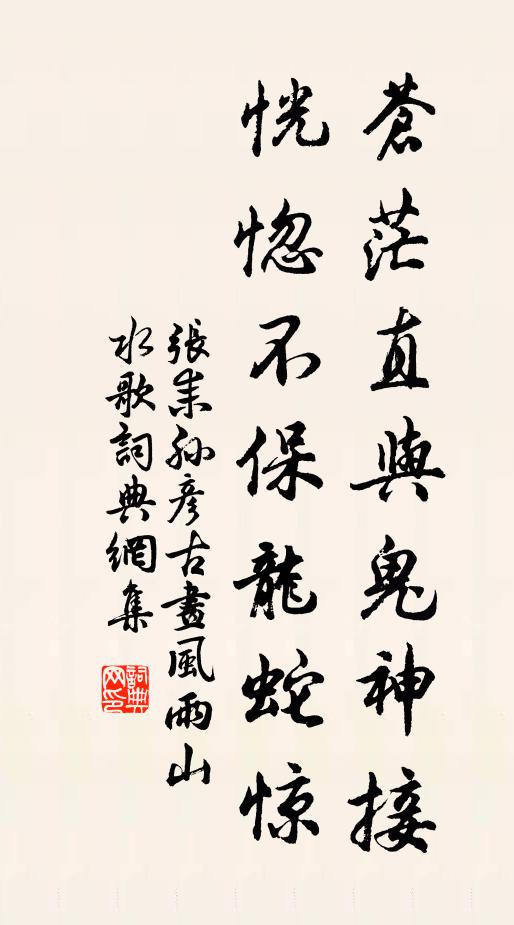 蒼茫直與鬼神接
恍惚不保龍蛇惊
張耒孙彦古畫風雨山
水歌詞典網集
詞典
网印